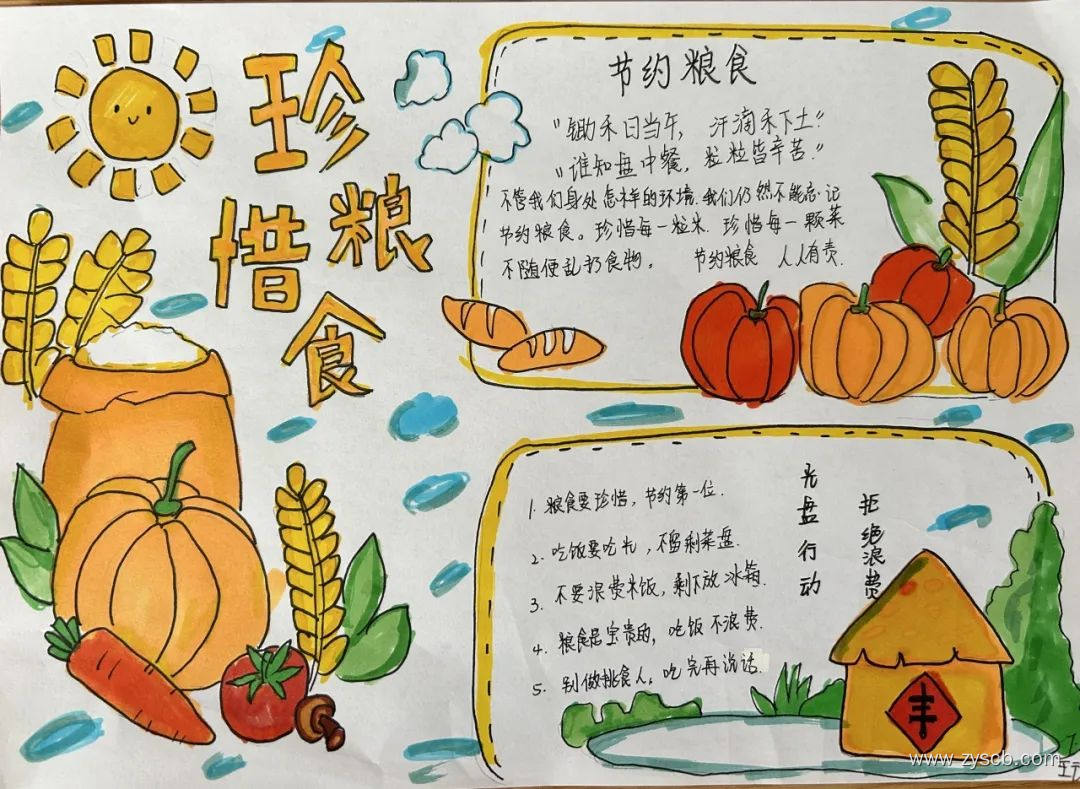 珍
惜粮
食
节约粮食
"锄禾日当午，汗滴禾下土."
"谁知盘中餐，粒粒皆辛苦."
不管我们身处怎样的环境.我们仍然不能忘记
节约粮食。珍惜每一粒米.珍惜每一颗菜
不随便乱扔食物。 节约粮食 人人有责.
1. 粮食要珍惜，节约第一位.
2. 吃饭要吃光，不留剩菜盘.
3. 不要浪费米饭，剩下放冰箱.
4. 粮食是宝贵的，吃饭不浪费.
5. 别做挑食人，吃完再说话.
光盘行动
拒绝浪费
丰
www.zyscb.com